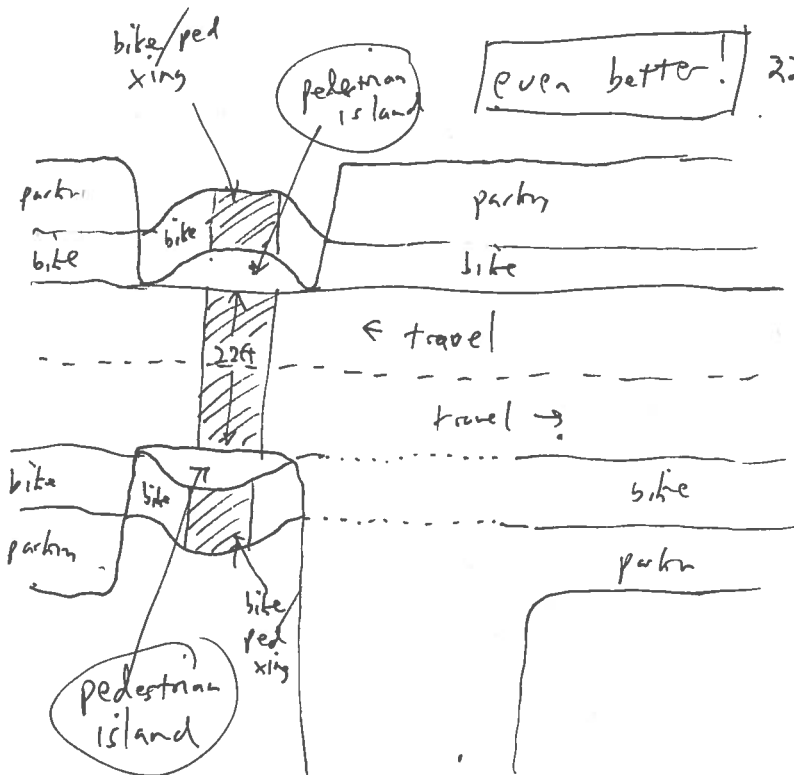 bike/ped
xing
pedestrian
island
even better!
parkn
bike
bike
parkn
bike
← travel
22ft
travel →
bike
bike
parkn
bike
parkn
bike
ped
xing
pedestrian
island